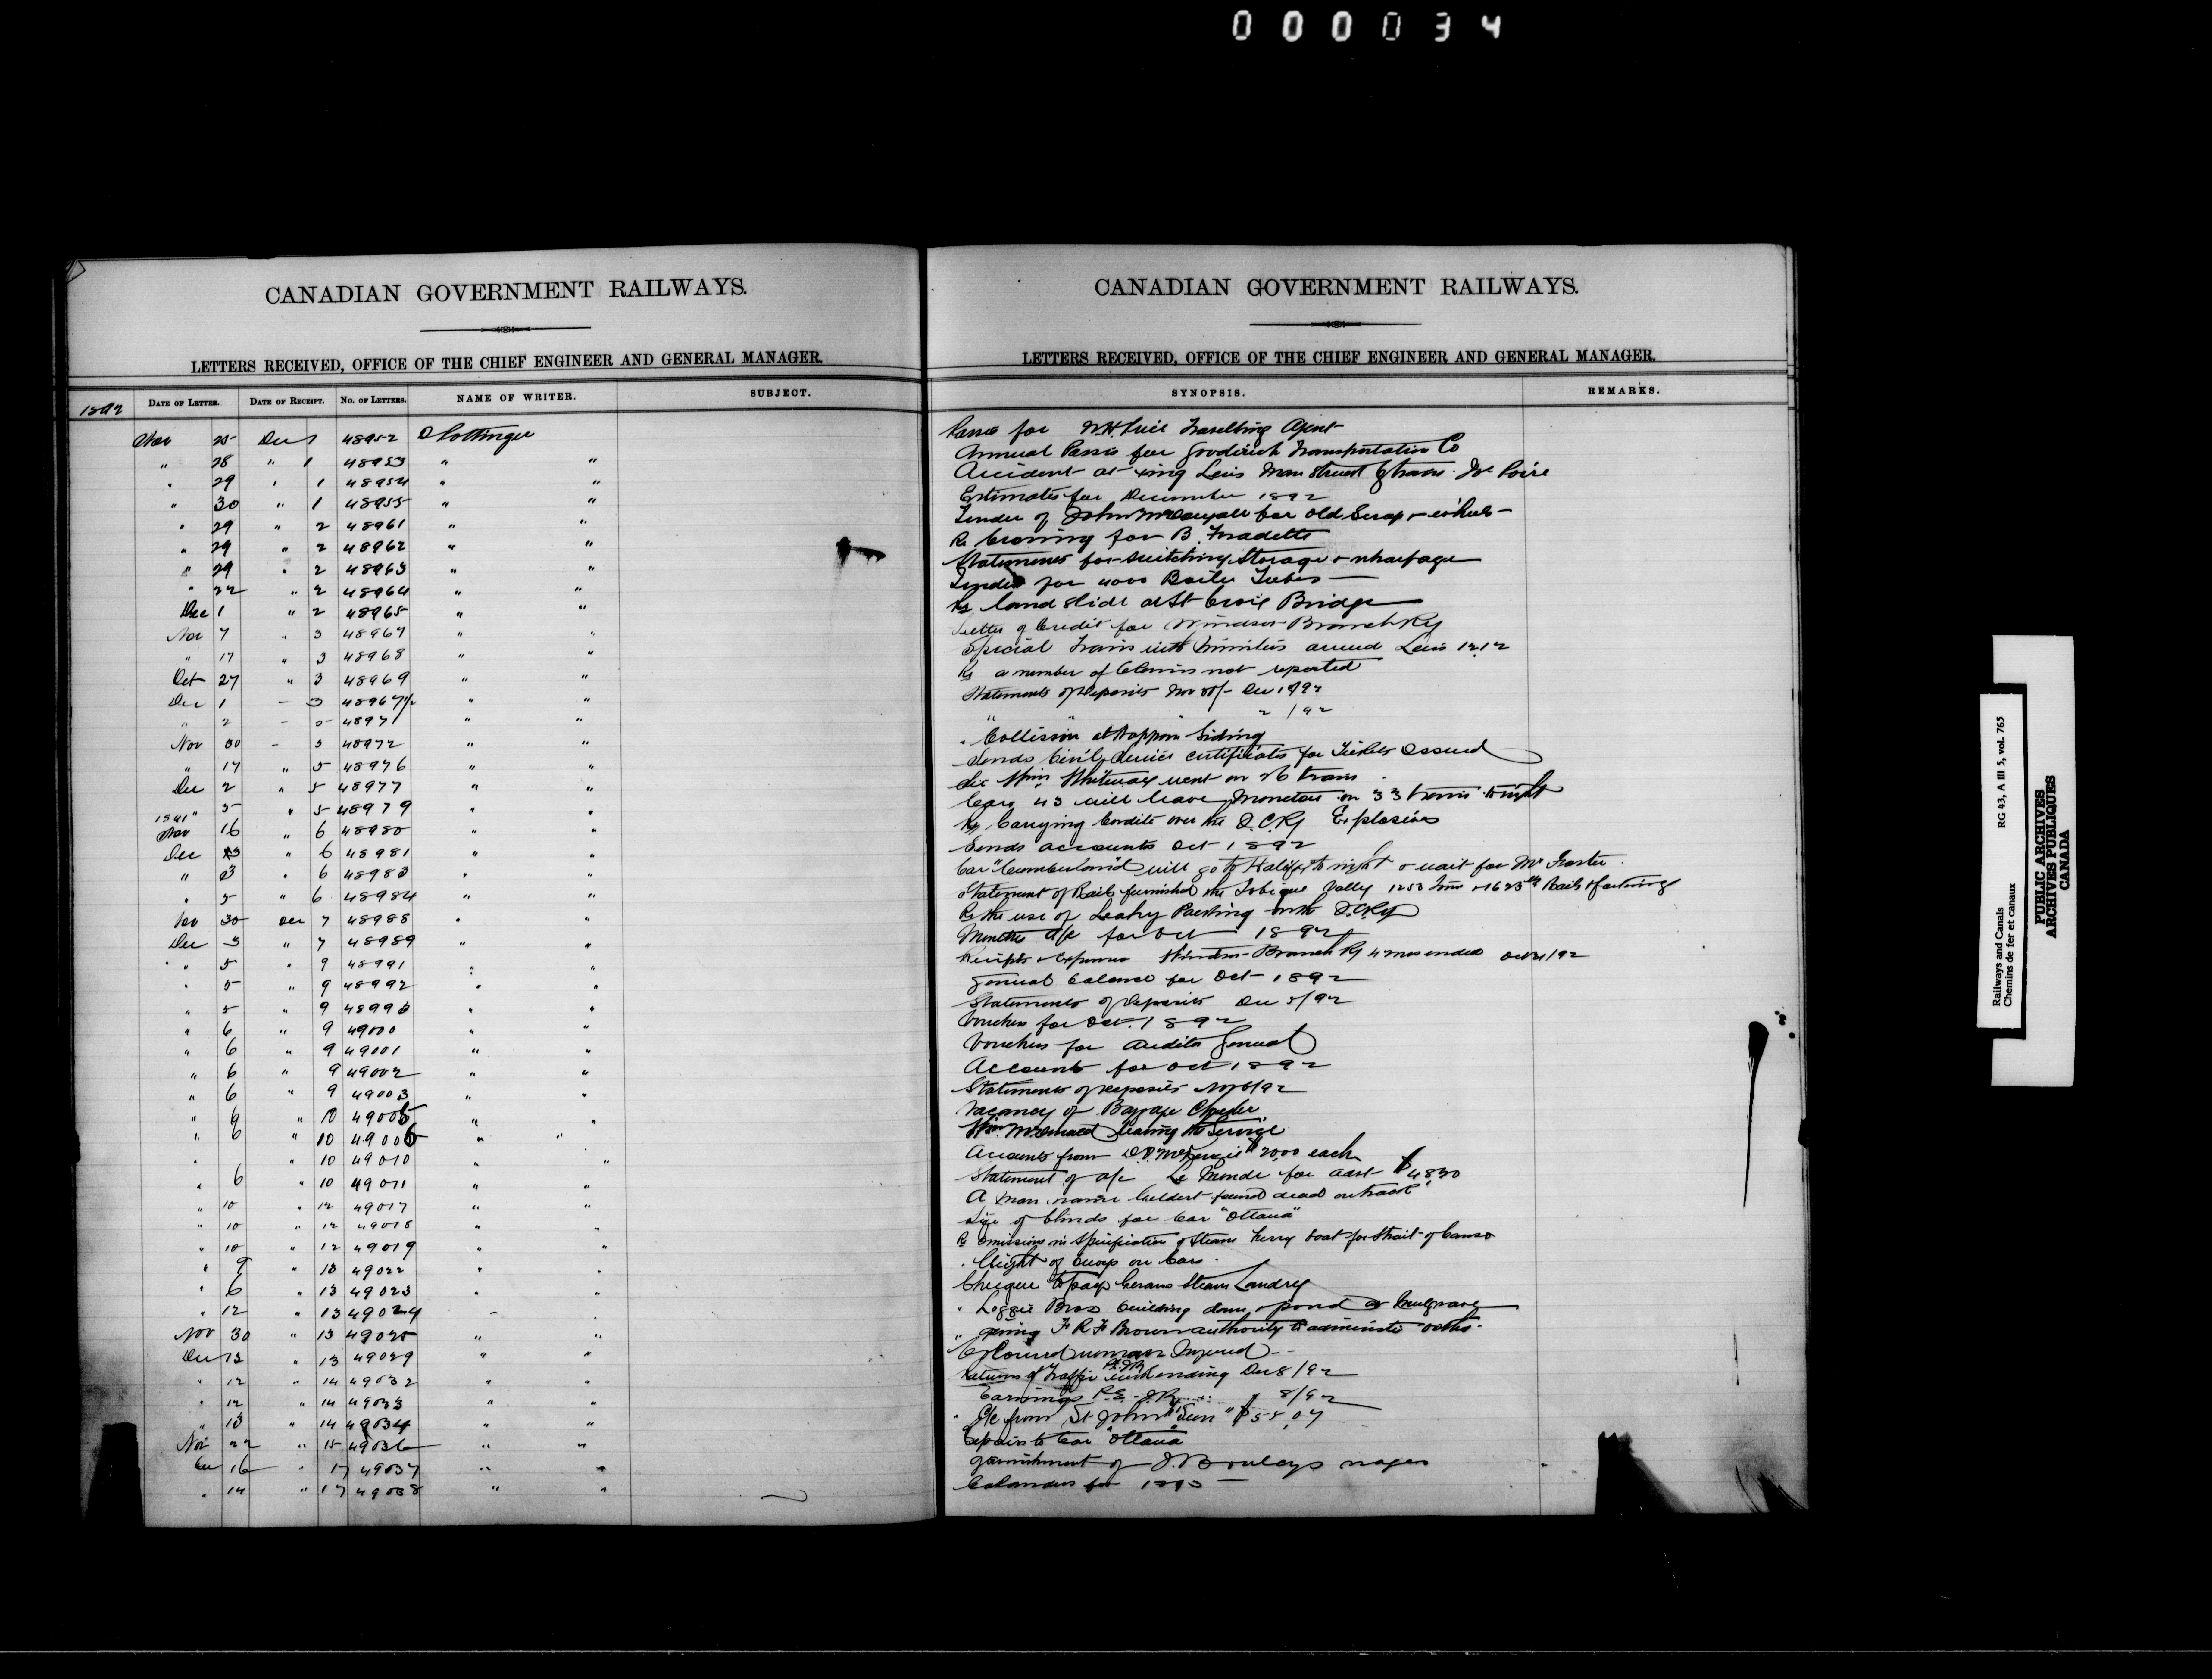 000034
CANADIAN GOVERNMENT RAILWAYS.
LETTERS RECEIVED, OFFICE OF THE CHIEF ENGINEER AND GENERAL MANAGER.
1892 DATE OF LETTER. DATE OF RECEIPT. NO. OF LETTERS. NAME OF WRITER. SUBJECT.
Nov 25 Dec 1 48952 D Pottinger
" 28 " 1 48953 " "
" 29 " 1 48954 " "
" 30 " 1 48955 " "
" 29 " 2 48961 " "
" 29 " 2 48962 " "
" 29 " 2 48963 " "
" 22 " 2 48964 " "
Dec 1 " 2 48965 " "
Nov 7 " 3 48967 " "
" 17 " 3 48968 " "
Oct 27 " 3 48969 " "
Dec 1 - 3 48967½ " "
" 2 - 5 48971 " "
Nov 30 - 5 48972 " "
" 17 " 5 48976 " "
Dec 2 " 5 48977 " "
" 5 " 5 48979 " "
1891 Nov 16 " 6 48980 " "
Dec " 6 48981 " "
" 3 " 6 48983 " "
" 5 " 6 48984 " "
Nov 30 Dec 7 48988 " "
Dec 3 " 7 48989 " "
" 5 " 9 48991 " "
" 5 " 9 48992 " "
" 5 " 9 48993 " "
" 6 " 9 49000 " "
" 6 " 9 49001 " "
" 6 " 9 49002 " "
" 6 " 9 49003 " "
" 9 " 10 49005 " "
" 6 " 10 49006 " "
" " 10 49010 " "
" 6 " 10 49011 " "
" 10 " 12 49017 " "
" 10 " 12 49018 " "
" 10 " 12 49019 " "
" 9 " 13 49022 " "
" 6 " 13 49023 " "
" 12 " 13 49024 "
Nov 30 " 13 49025 " "
Dec 12 " 13 49029 " "
" 12 " 14 49032 " "
" 12 " 14 49033 " "
" 13 " 14 49034 " "
Nov 22 " 15 49036 " "
Dec 16 " 17 49037 " "
" 14 " 17 49038 " "
CANADIAN GOVERNMENT RAILWAYS.
LETTERS RECEIVED, OFFICE OF THE CHIEF ENGINEER AND GENERAL MANAGER.
SYNOPSIS. REMARKS.
Passes for W.H. Price Travelling Agent
Annual Passes for Goodrich Transportation Co
Accident at Levis Man Struck by train
Estimates for December 1892
Tender of John McDougall for old Scrap + wheels
Re Crossing for B. Fradette
Statements for switching Storage + wharfage
Tender for 4000 Boiler Tubes
Re land slide at St Croix Bridge
Letter of Credit for Windsor Branch Ry
Special Train with Ministers arrived Levis 12.12
Re a number of Claims not reported
Statements of Deposits Nov 30/- Dec 1/92
" " " 2/92
" Collision at Siding
Sends Civil Service certificates for Tickets Issued
Sir Wm Whiteway went on 26 train
Cars 43 will leave Moncton on 33 train tonight
Re Carrying Cordite over the I.C.Ry Explosives
Sends accounts Oct 1892
Car "Cumberland" will go to Halifax to night + wait for Mr Foster
Statement of Rails furnished the Tobique Valley 1253 Tons + 1623 lbs Rails + fastenings
Re the use of Leahy Packing on the I.C.Ry
a/c for Oct 1892
Receipts + Expenses Windsor Branch Ry 4 mos ended Oct 31/92
General balance for Oct 1892
Statements of Deposits Dec 5/92
Vouchers for Oct. 1892
Vouchers for Auditor General
Accounts for Oct 1892
Statements of Deposits 6/92
Vacancy of Baggage Checker
Wm McDonald leaving the Service
Accounts from $20.00 each
Statement of a/c Le Monde for advt $48.30
A man name Geldert found dead on track
Size of blinds for Car "Ottawa"
Re omissions in Specification of Steam Ferry boat for Strait of Canso
" Weight of on Cars
Cheque to pay Steam Laundry
" Loggie Bros building dam + pond at Mulgrave
" giving F R F Brown authority to administer oaths
Coloured woman Injured
Returns of Traffic P.E.I.Ry ending Dec 8/92
Earnings P.E.I.Ry " 8/92
" A/c from St John "Sun" $58.07
Repairs to Car "Ottawa"
Garnishment of wages
Calendars for 1893
Railways and Canals RG 43, A III 5, vol. 765
Chemins de fer et canaux
PUBLIC ARCHIVES
ARCHIVES PUBLIQUES
CANADA